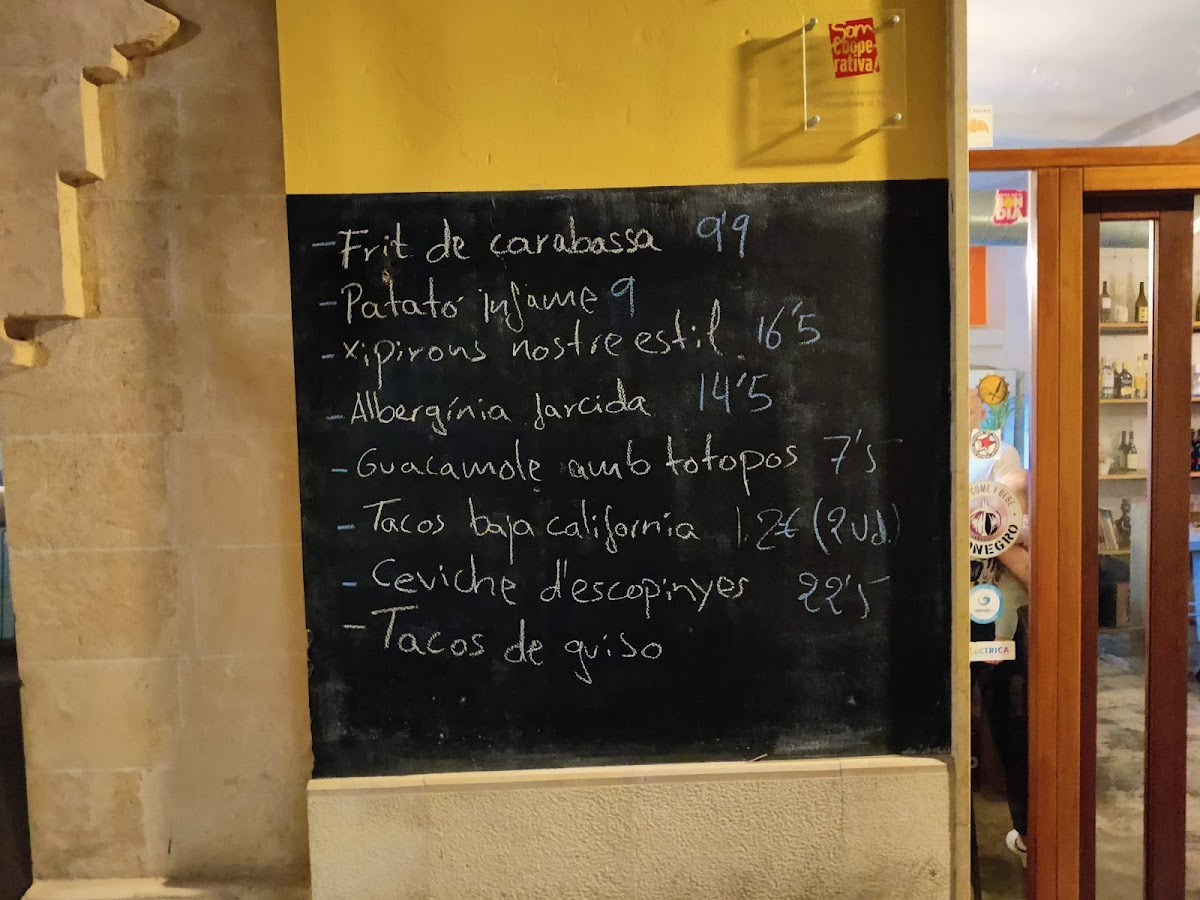 Som
Coope-
rativa!
- Frit de carabassa 9'9
- Patató infame 9
- Xipirons nostre estil 16'5
- Albergínia farcida 14'5
- Guacamole amb totopos 7'5
- Tacos baja california 12€ (2 Ud.)
- Ceviche d'escopinyes 22'5
- Tacos de guiso
BON
DIA
COME Y BEBE
NEGRO
ÈCTRICA